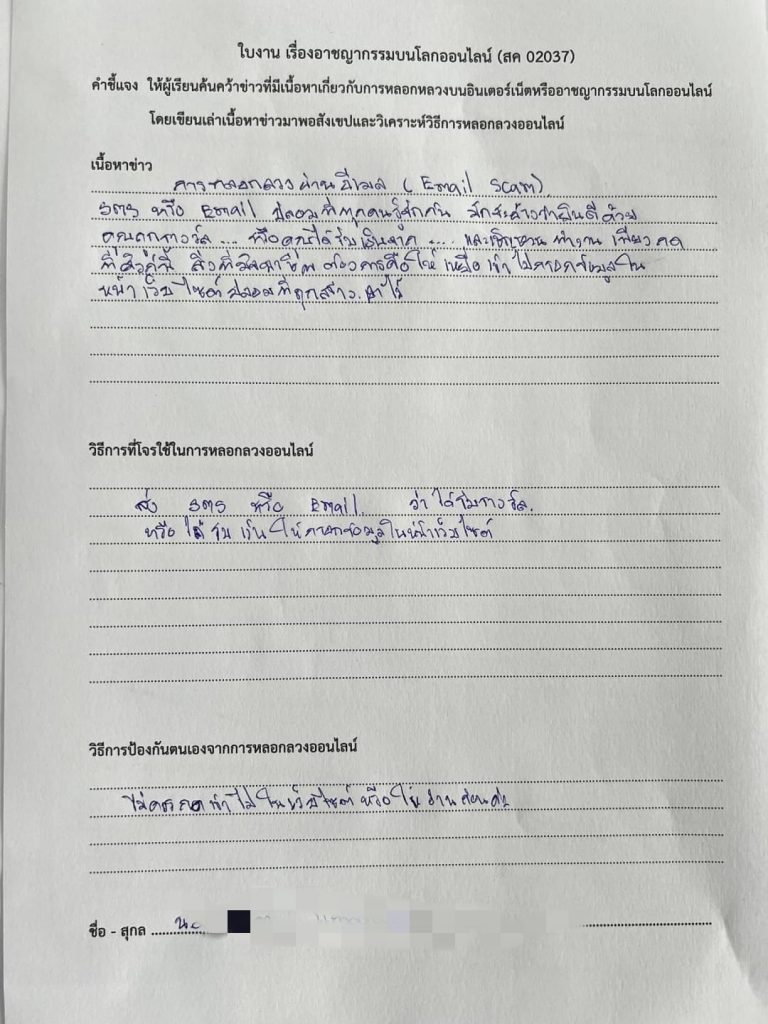 ใบงาน เรื่องอาชญากรรมบนโลกออนไลน์ (สค 02037)
คำชี้แจง ให้ผู้เรียนค้นคว้าข่าวที่มีเนื้อหาเกี่ยวกับการหลอกหลวงบนอินเตอร์เน็ตหรืออาชญากรรมบนโลกออนไลน์
โดยเขียนเล่าเนื้อหาข่าวมาพอสังเขปและวิเคราะห์วิธีการหลอกลวงออนไลน์
เนื้อหาข่าว
การหลอกลวงผ่านอีเมล (Email Scam)
SMS หรือ Email ปลอมที่ทุกคนรู้จักกัน มักจะอ้างว่ายินดีด้วย
คุณถูกรางวัล ... หรือคุณได้รับเงินจาก .... และเชิญชวน ทำงาน เพียงกด
ที่ลิงก์นี้ สิ่งที่มิจฉาชีพ ต้องการคือให้ เหยื่อ เข้าไปกรอกข้อมูลใน
หน้า เว็บไซต์ปลอมที่ถูกสร้างเอาไว้
วิธีการที่โจรใช้ในการหลอกลวงออนไลน์
ส่ง SMS หรือ Email. ว่าได้รับรางวัล.
หรือ ได้รับ เงิน ให้กรอกข้อมูลในหน้าเว็บไซต์
วิธีการป้องกันตนเองจากการหลอกลวงออนไลน์
ไม่ควรกดเข้าไปในเว็บไซต์ หรือ อ่านก่อน
ชื่อ - สุกล